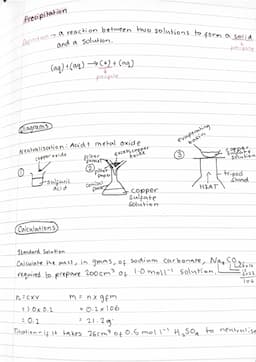 Precipitation
Definition → a reaction between two solutions to form a solid
and a solution.
precipitate
(aq) + (aq) → (s) + (aq)
precipitate
Diagrams
Neutralisation: Acid + metal oxide
copper oxide
①
Sulfuric
Acid
②
filter
funnel
filter
paper
excess copper
oxide
conical
flask
copper
Sulfate
Solution
③
Evaporating
basin
copper
Sulfate
solution
tripod
stand
HEAT
Calculations
Standard Solution
Calculate the mass, in grams, of sodium carbonate, Na₂CO₃
required to prepare 200cm³ of 1.0 mol l⁻¹ solution.
106
n = c x v
m = n x gfm
= 1.0 x 0.2
= 0.2 x 106
= 0.2
= 21.2g
Titration: if it takes 26cm³ of 0.5 mol l⁻¹ H₂SO₄ to neutralise